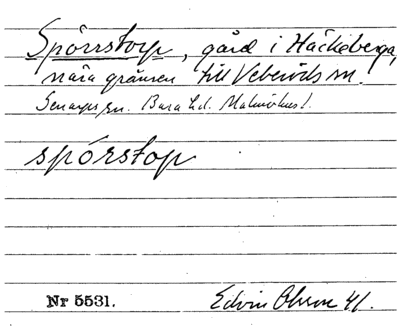 Spörrstorp, gård i Häckeberga,
nära gränsen till Veberöds sn.
Genarps sn. Bara hd. Malmöhus l.
spórstop
Nr 5531. Edvin Ohlsson 41.